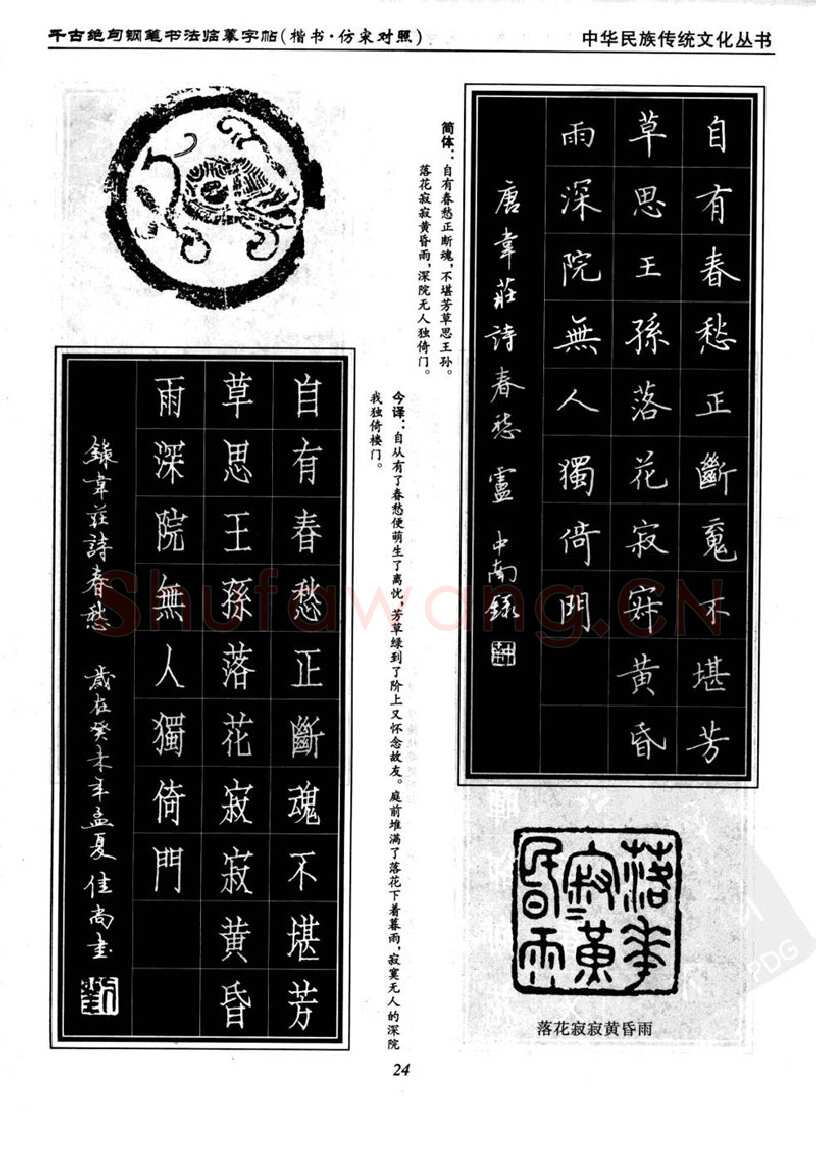 千古绝句钢笔书法临摹字帖(楷书·仿宋对照)
中华民族传统文化丛书
自有春愁正斷魂不堪芳
草思王孫落花寂寂黄昏
雨深院無人獨倚門
唐韋莊詩春愁 盧中南錄
简体：自有春愁正断魂，不堪芳草思王孙。
落花寂寂黄昏雨，深院无人独倚门。
今译：自从有了春愁便萌生了离忧，芳草绿到了阶上又怀念故友。庭前堆满了落花下着暮雨，寂寞无人的深院
我独倚楼门。
自有春愁正斷魂不堪芳
草思王孫落花寂寂黄昏
雨深院無人獨倚門
錄韋莊詩春愁 歲在癸未年孟夏佳尚書
落花寂寂黄昏雨
落花寂寂黄昏雨
24
Shufawang.CN
PDG